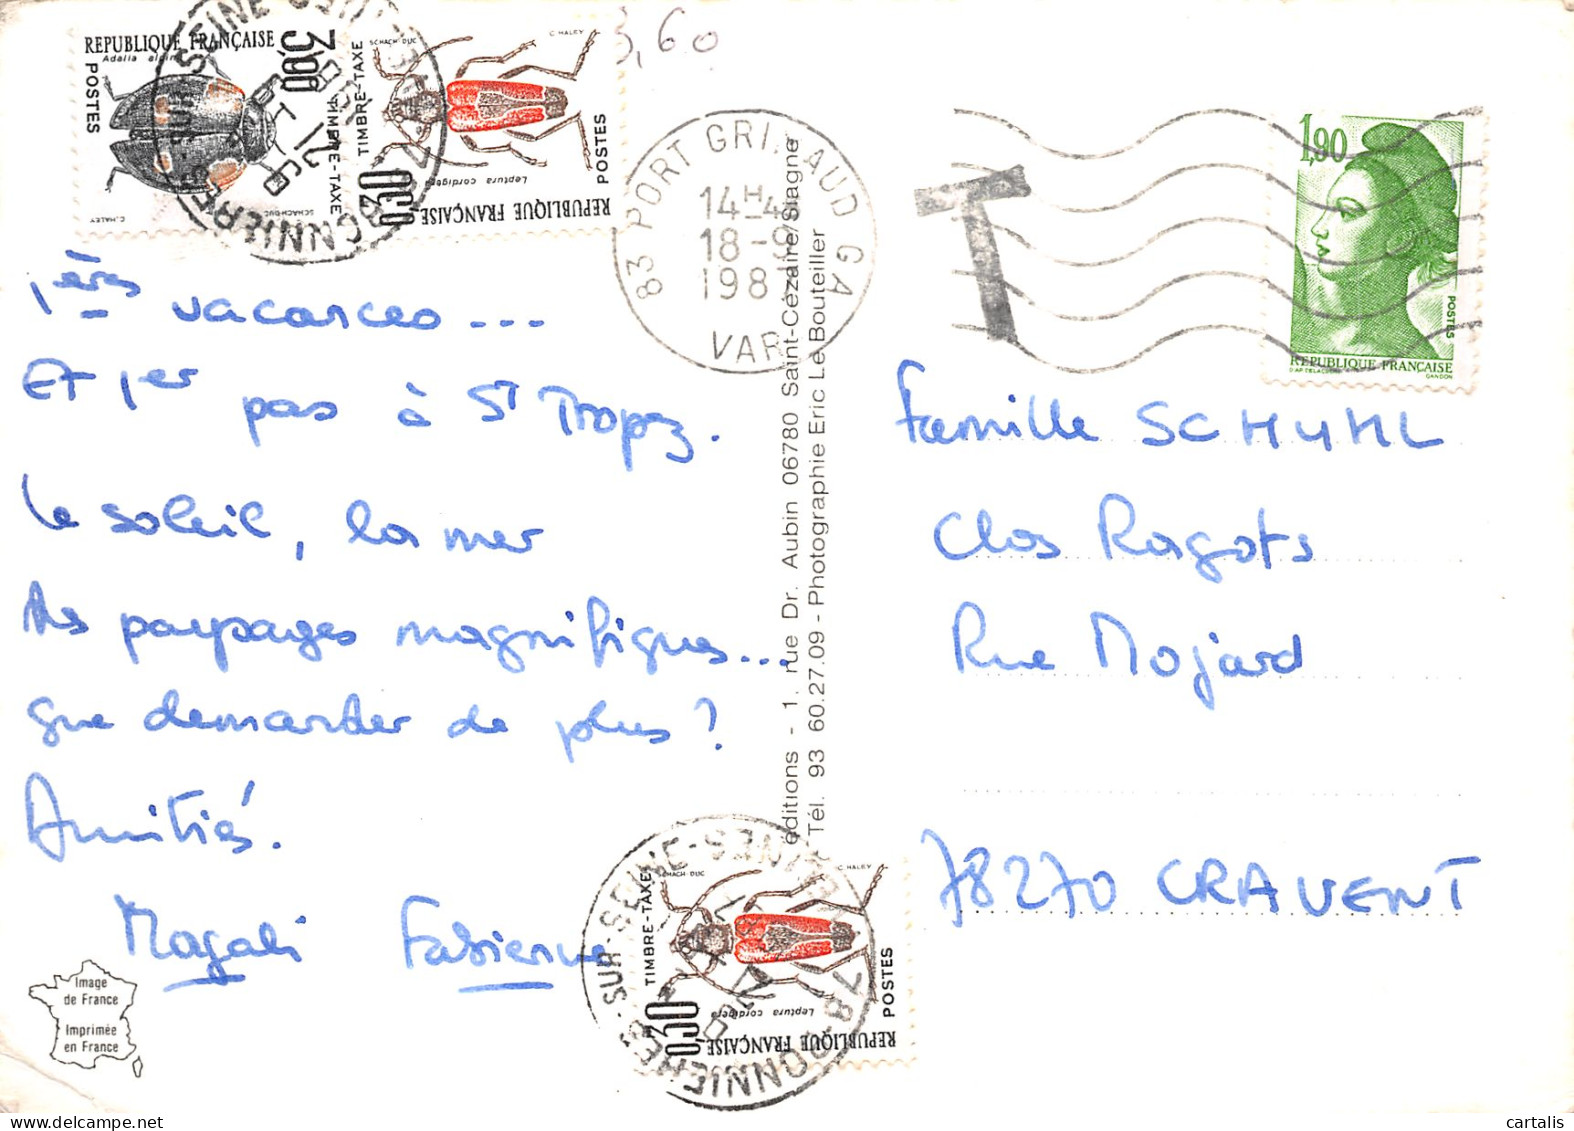 REPUBLIQUE FRANÇAISE
Adalia alpina
POSTES
3,00
TIMBRE-TAXE
C. HALEY
SCHACH DUC
SCHACH-DUC
C. HALEY
TIMBRE-TAXE
0,30
Leptura cordigera
POSTES
REPUBLIQUE FRANÇAISE
3,60
83 PORT GRIMAUD GA
14H4
18-9
198
VAR
T
1,90
POSTES
REPUBLIQUE FRANÇAISE
D'AP. DELACROIX
GANDON
1ères vacances...
Et 1er pas à St Tropez.
Le soleil, la mer
des paysages magnifiques...
que demander de plus ?
Amitiés.
Magali Fabienne
éditions - 1, rue Dr. Aubin 06780 Saint-Cézaire/Siagne
Tél. 93 60.27.09 - Photographie Eric Le Bouteiller
Famille SCHUHL
Clos Ragots
Rue Mojard
78270 CRAVENT
Image
de France
Imprimée
en France
78-BONNIERES-SUR-SEINE
SCHACH-DUC
C. HALEY
TIMBRE-TAXE
0,30
Leptura cordigera
POSTES
REPUBLIQUE FRANÇAISE
www.cartalis.com